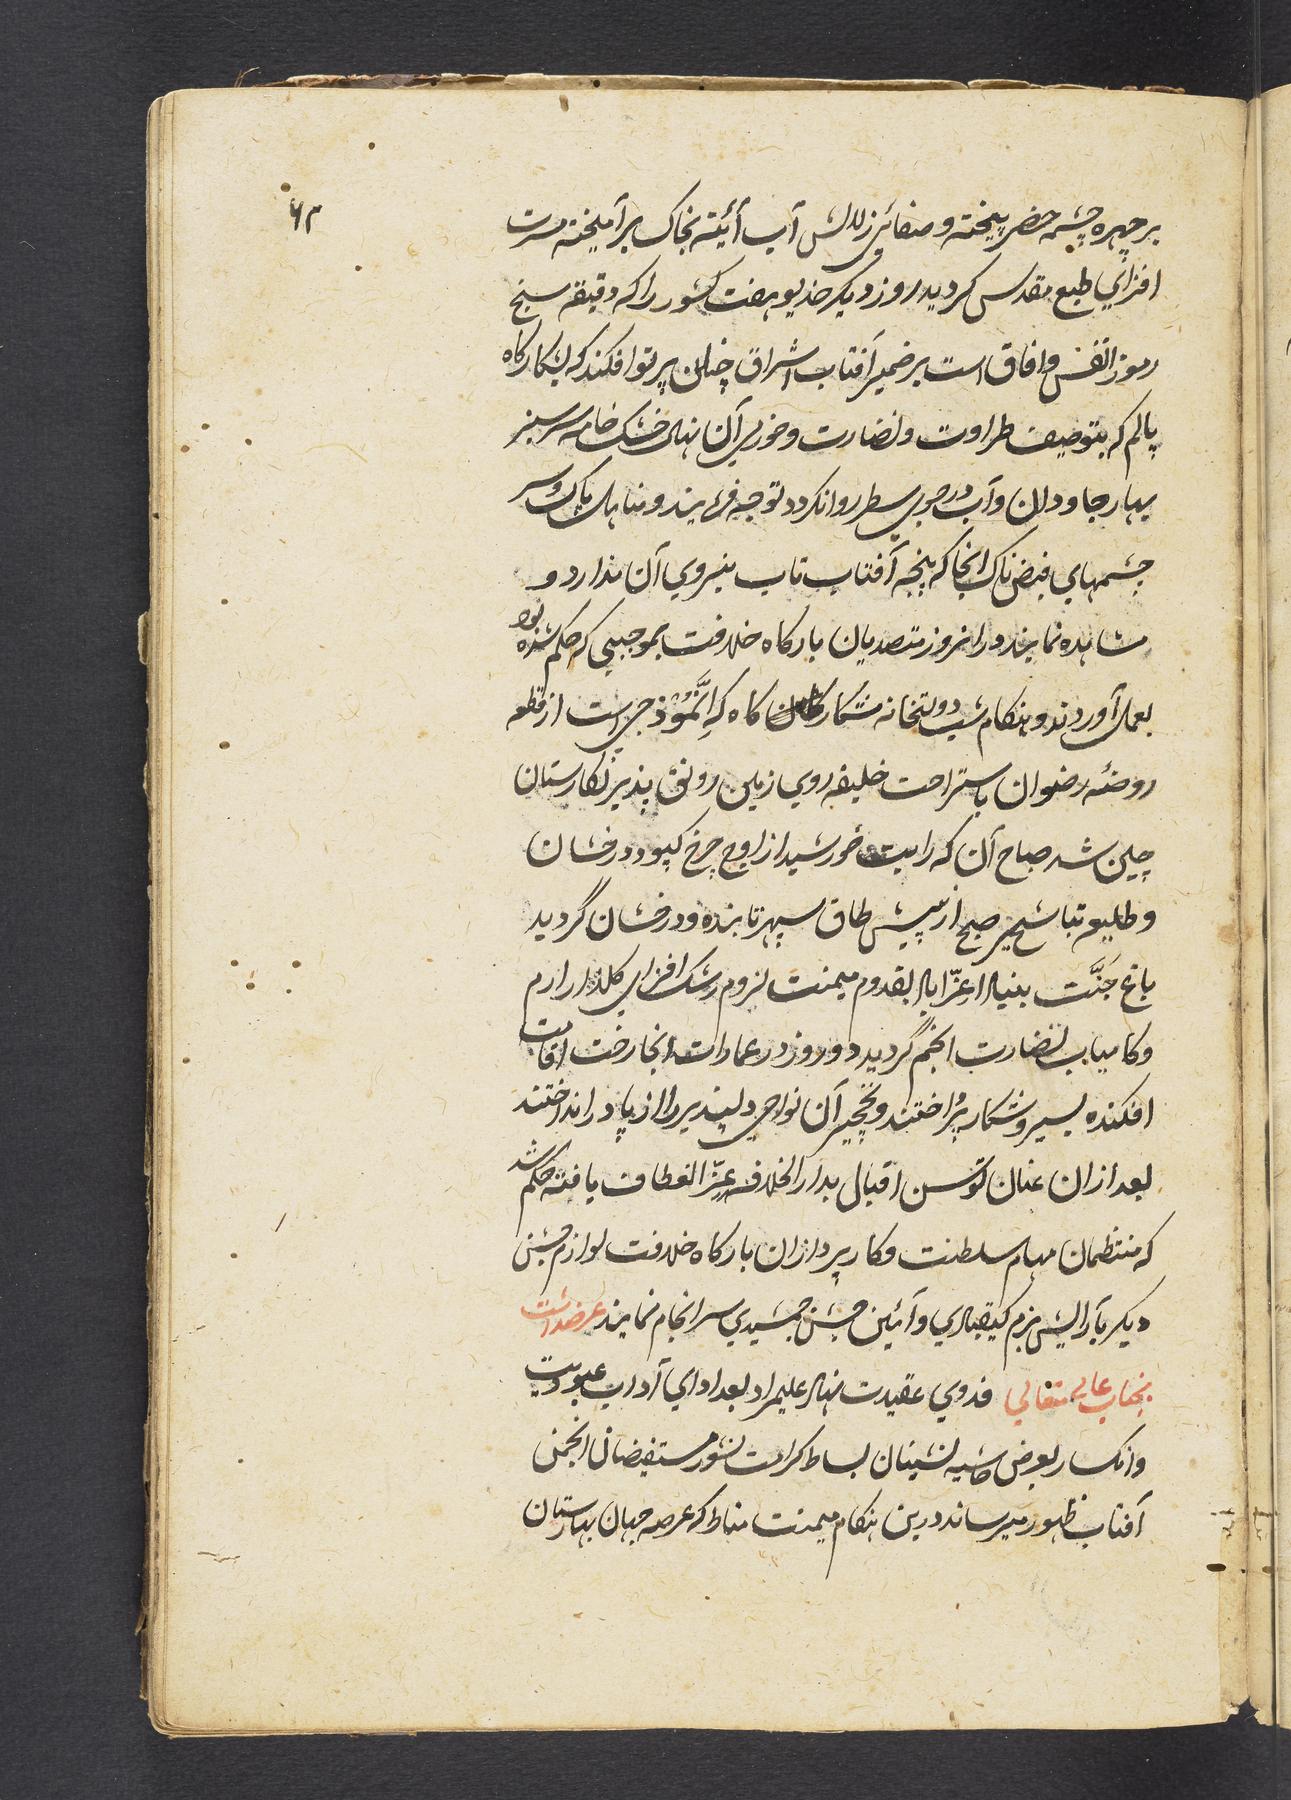 ۶۳
بر چهره چشمه خضر بیخته و صفائی زلالش آب آئینه بخاک برآمیخته مسرت
افزای طبع مقدس کردید روز دیکر خدیو هفت کشور را که دقیقه سنج
رموز انفس و افاق است بر ضمیر آفتاب اشراق چنان پرتو افکند که بشکار کاه
پالم که بتوصیف طراوت و نضارت و خوبی آن نهال خشک خامه سرسبز
بهار جاودان و آب در جوی سطر روان کردد توجه فرمایند و مناهل پاک و سر
چشمهای فیض ناک انجا که پنجه آفتاب تاب نیروی آن ندارد و
مشاهده نمایند در انروز متصدیان بارکاه خلافت بموجبی که حکم شده بود
بعمل آوردند و هنکام شب دولتخانه شکار کاه که اَنموذجی است از قطعه
روضئه رضوان باستراحت خلیفه روی زمین رونق پذیر نکارستان
چین شد صباح آن که رایت خورشید از اوج چرخ کبود درخشان
و طلیعه تباشیر صبح از پیش طاق سپهر تابنده و درخشان گردید
باغ جَنَّت بنیاد اعزّاباد بقدوم میمنت لزوم رشک افزای کلزار ارم
و کامیاب نضارت انجم گردید دو روز در عمارات انجا رخت اقامت
افکنده بسیر و شکار پرداختند و نخچیر آن نواحی دلپذیر را از پا در انداختند
بعد ازان عنان توسن اقبال بدار الخلافه عزّ انعطاف یافته حکم شد
که منتظمان مهام سلطنت و کار پردازان بارکاه خلافت لوازم جشن
دیکر بآرایش بزم کیقبادی و آئین جشن جمشیدی سرانجام نمایند عرضداشت
بجناب عالی متعالی فدوی عقیدت نهاد علیمراد بعد ادای آداب عبودیت
و انکسار بعرض حاشیه نشینان بساط کرامت نشور مستفیضان انجمن
آفتاب ظهور میرساند درین هنکام میمنت مناط که عرصه جهان بهارستان